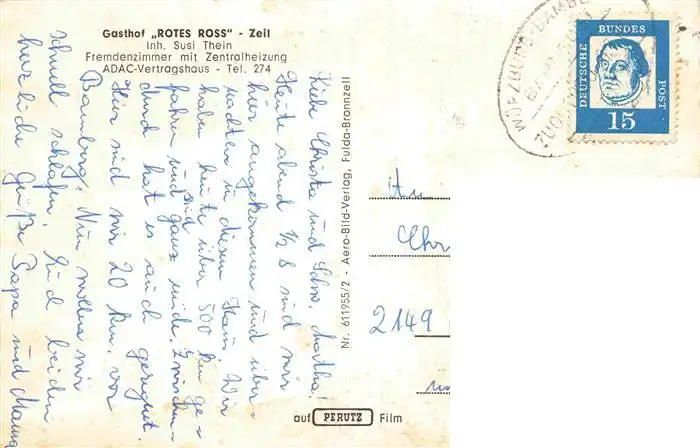 Gasthof „ROTES ROSS" - Zeil
Inh. Susi Thein
Fremdenzimmer mit Zentralheizung
ADAC-Vertragshaus - Tel. 274
Liebe Christa und Schw. Martha!
Heute abend ½ 8 sind wir
hier angekommen und über-
nachten in diesem Haus. Wir
haben heute über 500 km ge-
fahren und sind ganz müde. Zwischen-
durch hat es auch geregnet.
Hier sind wir 20 km. vor
Bamberg. Nun wollen wir
schnell schlafen. Euch beiden
herzliche Grüße Papa und Mama
Nr. 611955/2 - Aero-Bild-Verlag, Fulda-Bronnzell
auf PERUTZ Film
WÜRZBURG-BAMBE
ZUG
DEUTSCHE BUNDES POST
15
An
Chr
2149